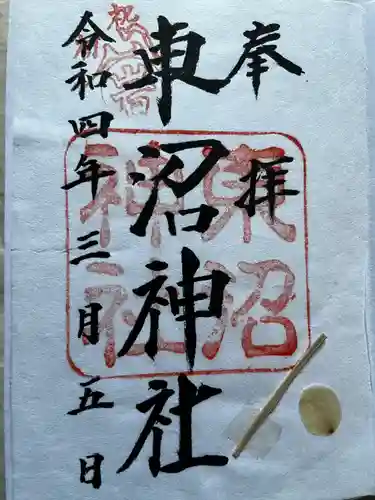 奉拝
東沼神社
令和四年三月五日
東沼
神社